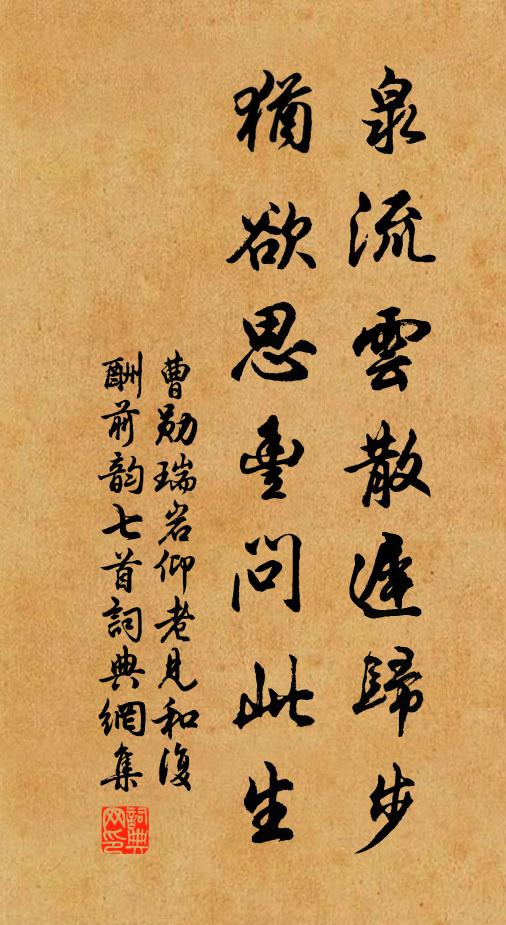 泉流雲散遲歸步
猶欲思豊問此生
曹勋瑞岩仰老見和復
酬前韵七首詞典網集
詞典网印